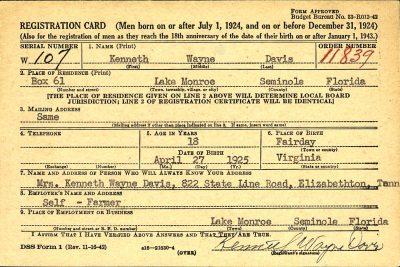 Form Approved
Budget Bureau No. 33-R012-42
REGISTRATION CARD (Men born on or after July 1, 1924, and on or before December 31, 1924)
(Also for the registration of men as they reach the 18th anniversary of the date of their birth on or after January 1, 1943.)
SERIAL NUMBER 1. NAME (Print) ORDER NUMBER
W 107 Kenneth Wayne Davis 11839
(First) (Middle) (Last)
2. PLACE OF RESIDENCE (Print)
Box 61 Lake Monroe Seminole Florida
(Number and street) (Town, township, village, or city) (County) (State)
[THE PLACE OF RESIDENCE GIVEN ON LINE 2 ABOVE WILL DETERMINE LOCAL BOARD
JURISDICTION; LINE 2 OF REGISTRATION CERTIFICATE WILL BE IDENTICAL]
3. MAILING ADDRESS
Same
(Mailing address if other than place indicated on line 2. If same, insert word same)
4. TELEPHONE 5. AGE IN YEARS 6. PLACE OF BIRTH
18 Fairday
DATE OF BIRTH (Town or county)
April 27 1925 Virginia
(Exchange) (Number) (Mo.) (Day) (Yr.) (State or country)
7. NAME AND ADDRESS OF PERSON WHO WILL ALWAYS KNOW YOUR ADDRESS
Mrs. Kenneth Wayne Davis, 822 State Line Road, Elizabethton, Tenn
8. EMPLOYER'S NAME AND ADDRESS
Self - Farmer
9. PLACE OF EMPLOYMENT OR BUSINESS
Lake Monroe Seminole Florida
(Number and street or R. F. D. number) (Town) (County) (State)
I AFFIRM THAT I HAVE VERIFIED ABOVE ANSWERS AND THAT THEY ARE TRUE.
DSS Form 1 (Rev. 11-16-42) (OVER) Kenneth Wayne Davis
(Registrant's signature)